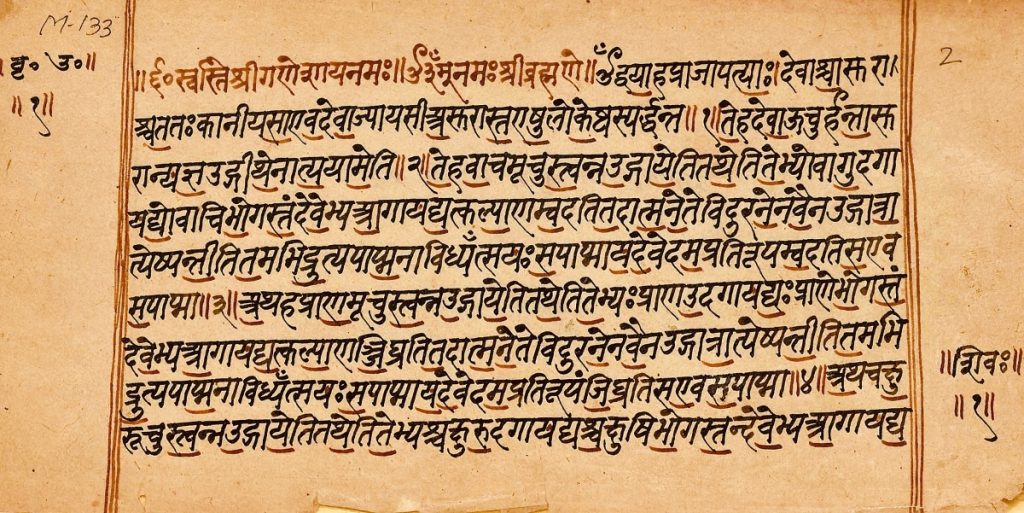 M-133
2
बृ॰ उ॰॥
॥१॥
॥६॰स्वस्तिश्रीगणेशायनमः॥ॐनमःश्रीब्रह्मणे॥ँद्वयाहप्राजापत्याः।देवाश्चासुरा
श्चततःकानीयसाएवदेवाज्यायसाअसुरास्तएषुलोकेष्वस्पर्द्धन्त॥१॥तेहदेवाऊचुर्हन्तासु
रान्यज्ञउद्गीथेनात्ययामेति॥२॥तेहवाचमूचुस्त्वन्नउद्गायेतितथेतितेभ्योवागुदगा
यद्योवाचिभोगस्तंदेवेभ्यआगायद्यत्कल्याणम्वदतितदात्मनेतेविदुरनेनवैनउद्गात्रा
त्येष्यन्तीतितमभिद्रुत्यपाप्मनाविध्यँत्सयःसपाप्मायदेवेदमप्रतिरूपम्वदतिसएव
सपाप्मा॥३॥अथहप्राणमूचुस्त्वन्नउद्गायेतितथेतितेभ्यःप्राणउदगायद्यःप्राणेभोगस्तं
देवेभ्यआगायद्यत्कल्याणञ्जिघ्रतितदात्मनेतेविदुरनेनवैनउद्गात्रात्येष्यन्तीतितमभि
द्रुत्यपाप्मनाविध्यँत्सयःसपाप्मायदेवेदमप्रतिरूपंजिघ्रतिसएवसपाप्मा॥४॥अथचक्षु
रूचुस्त्वन्नउद्गायेतितथेतितेभ्यश्चक्षुरुदगायद्यश्चक्षुषिभोगस्तन्देवेभ्यआगायद्य
॥शिवः॥
॥१॥